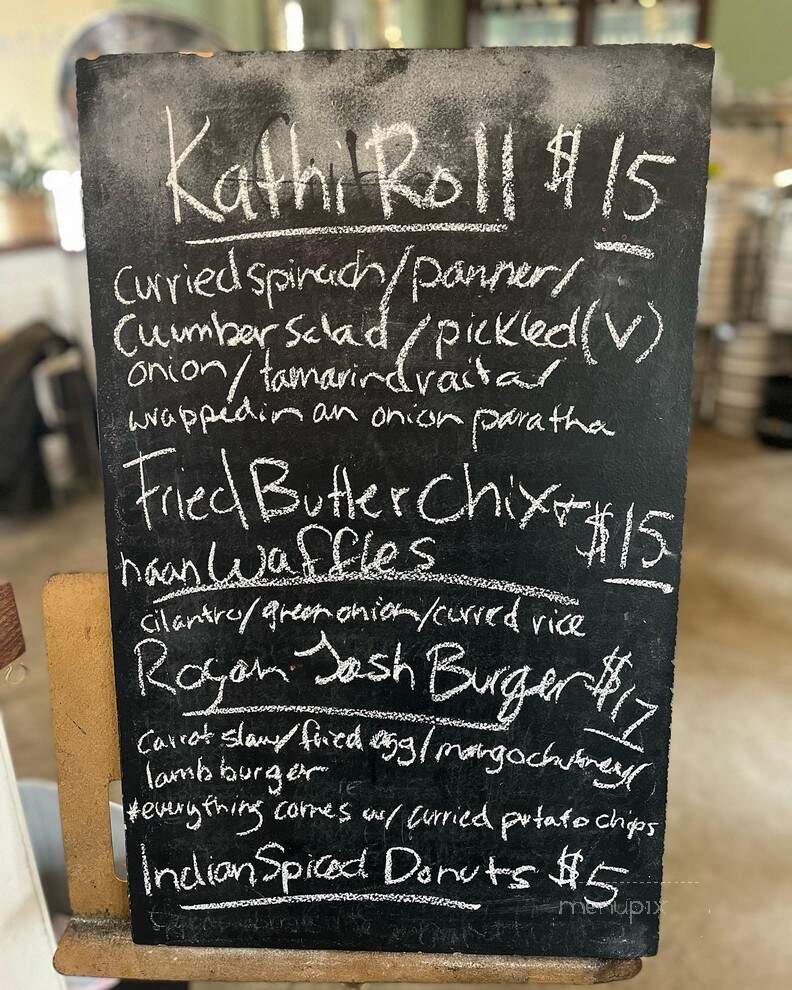 Kathi Roll $15
curried spinach/panner/
Cuumber Salad/pickled (v)
onion/tamarind raita/
wrapped in an onion paratha
Fried Butter Chix + $15
naan Waffles
cilantro/green onion/curred rice
Rogan Josh Burger $17
carrot slaw/fried egg/mango chutney/
lamb burger
*everything comes w/ curried potato chips
Indian Spiced Donuts $5
menupix